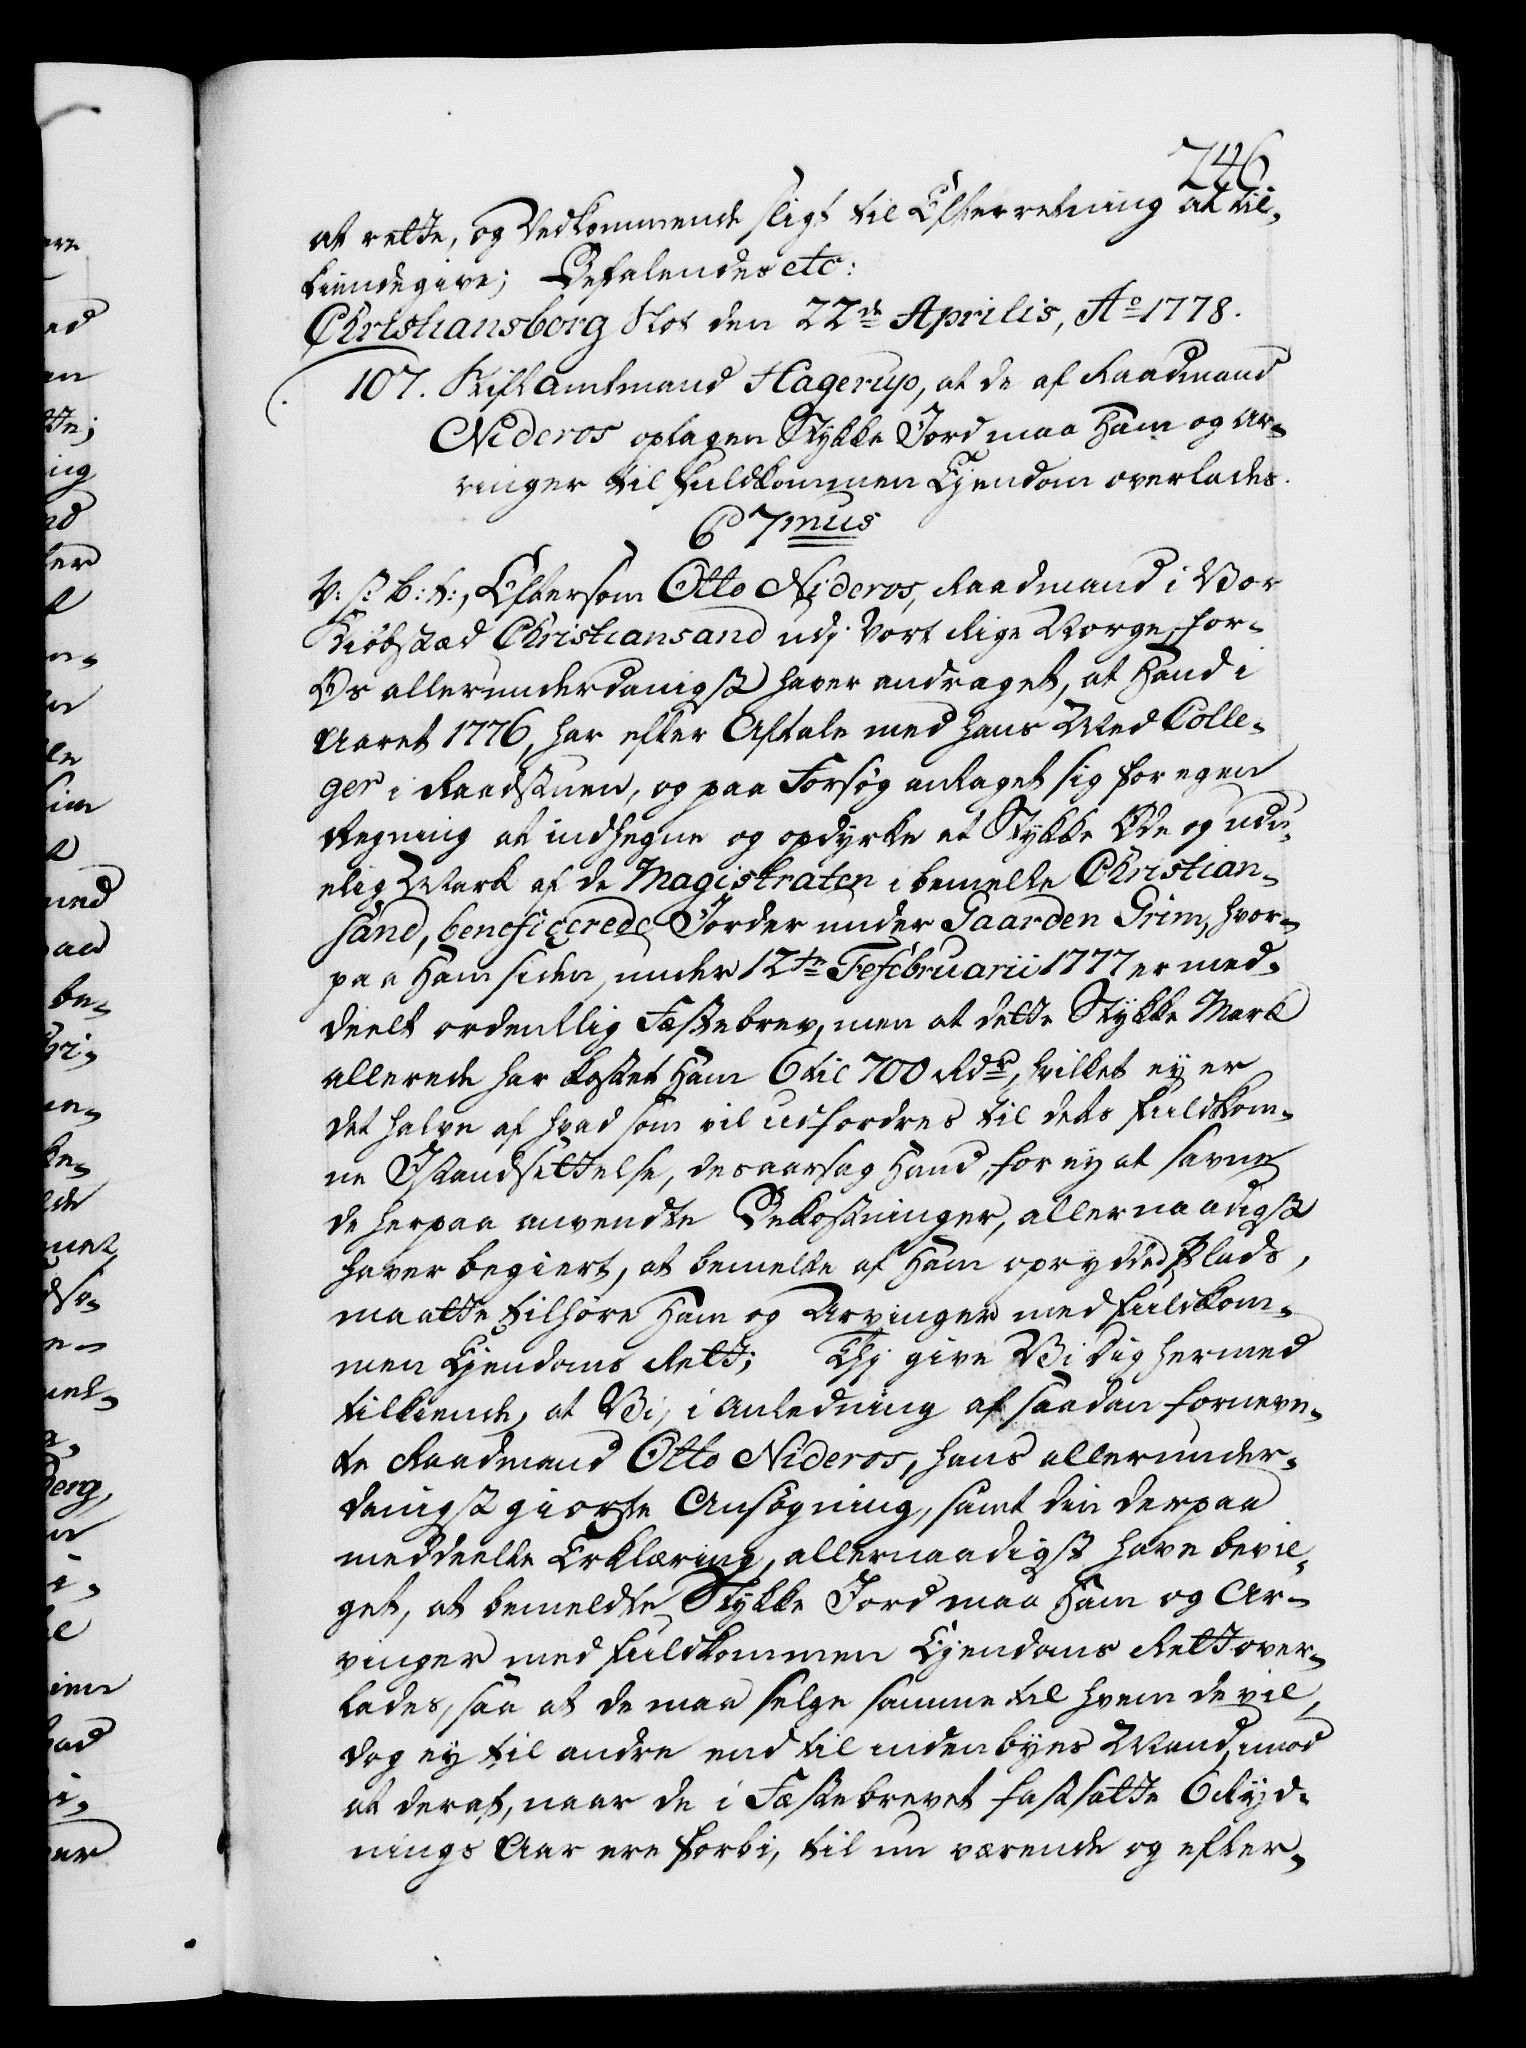 746
at rette, og Vedkommende sligt til Efterretning at til-
kiendegive; Befalendes etc:
Christiansborg Slot den 22de Aprilis, Ao 1778.
107. Stiftamtmand Hagerup, at de af Raadmand
Nideros optagen Stykke Jord maa Ham og Ar-
vinger til fuldkommen Ejendom overlades.
C 7mus
V: S: B: T:, Eftersom Otto Nideros, Raadmand i Vor
Kiøbstæd Christiansand udj Vort Rige Norge, for-
Os allerunderdanigst haver andraget, at Hand i
Aaret 1776, har efter Aftale med hans Med Colle-
ger i Raadstuen, og paa Forsøg antaget sig for egen
Regning at indhegne og opdyrke et Stykke Øde og udu-
elig Mark af de Magistraten i bemelte Christian-
sand, beneficerede Jorder under Gaarden Grim, hvor-
paa Ham siden, under 12te Fefebruarii 1777 er med-
deelt ordentlig Fæstebrev, men at dette Stykke Mark
allerede har kostet Ham 6 til 700 Rdr, hvilket ey er
det halve af hvad som vil udfordres til dets fuldkom-
ne Istandsettelse, desaarsag Hand, for ey at savne
de herpaa anvendte Bekostninger, allernaadigst
haver begiert, at bemelte af Ham opryddet Plads,
maatte tilhøre Ham og Arvinger med fuldkom-
men Ejendoms Rett; Thj give Vi Dig hermed
tilkiende, at Vi, i Anledning af saadan fornevn-
te Raadmand Otto Nideros, hans allerunder-
danigst giorte Ansøgning, samt din derpaa
meddeelte Erklæring, allernaadigst have bevil-
get, at bemeldte Stykke Jord maa Ham og Ar-
vinger med fuldkommen Ejendoms Rett over-
lades, saa at de maa selge samme til hvem de vil,
dog ey til andre end til indenbyes Mænd, imod
at deraf, naar de i Fæstebrevet fastsatte 6 Ryd-
nings Aar ere forbi, til nu værende og efter-